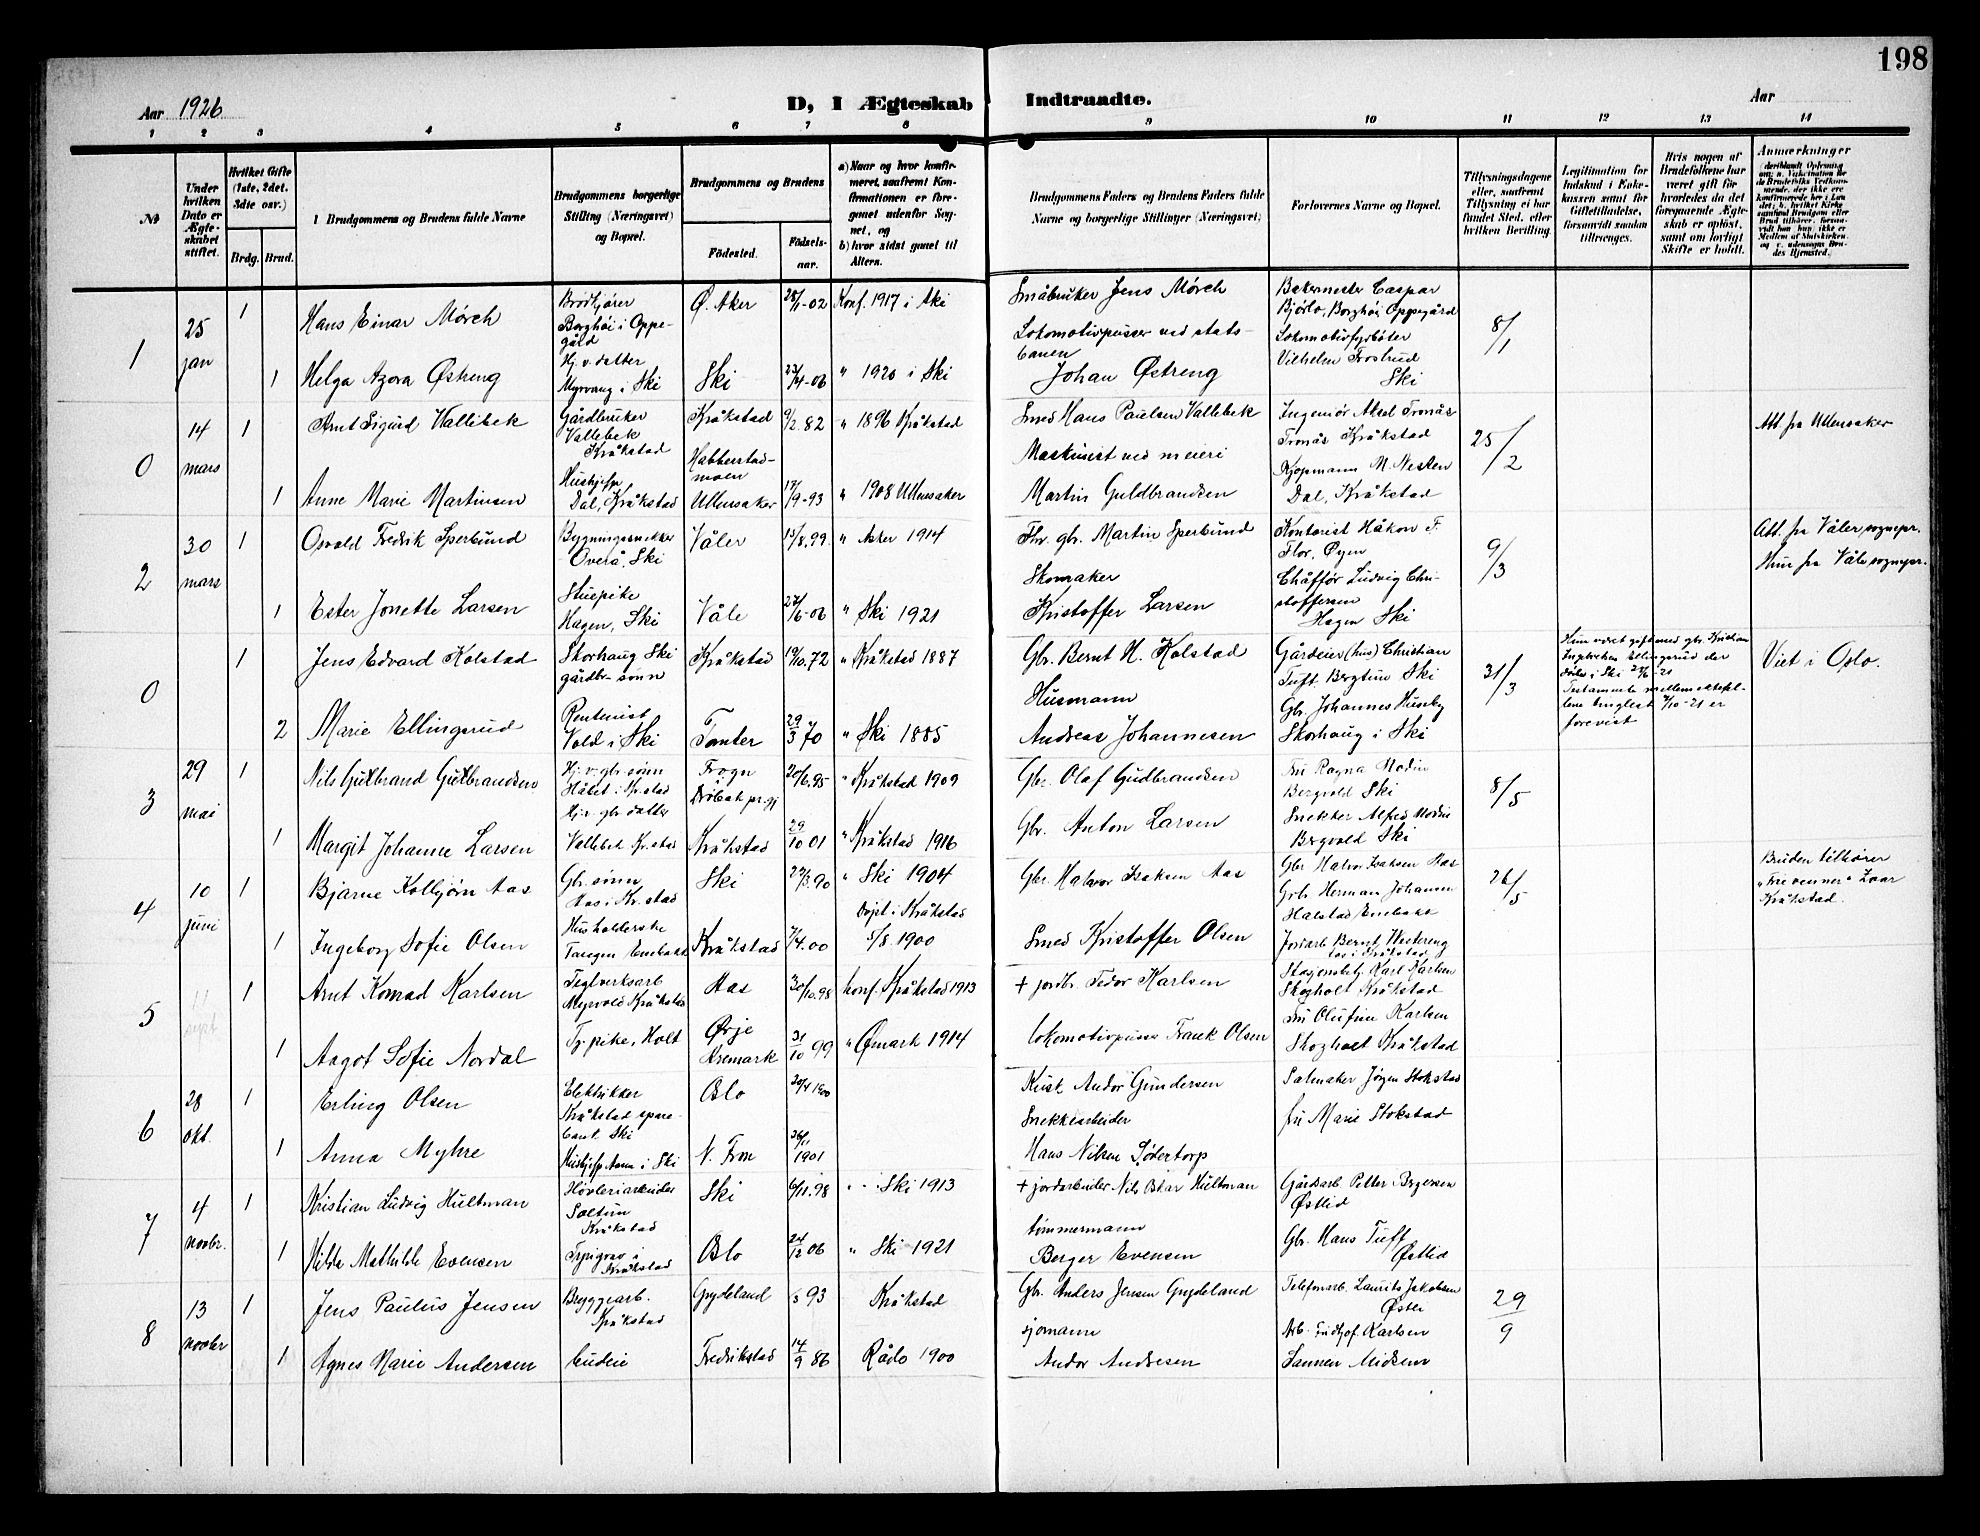 198
Aar 1926
D, I Ægteskab Indtraadte.
Aar
1 2 3 4 5 6 7 8 9 10 11 12 13 14
№
Under hvilken Dato er Ægteskabet stiftet.
Hvilket Gifte (1ste, 2det, 3die osv.)
Brdg. Brud.
Brudgommens og Brudens fulde Navne
Brudgommens borgerlige Stilling (Næringsvei) og Bopæl.
Brudgommens og Brudens
Fødested.
Fødselsaar.
a) Naar og hvor konfirmeret, saafremt Konfirmationen er foregaaet udenfor Sognet, og
b) hvor sidst gaaet til Alters.
Brudgommens Faders og Brudens Faders fulde Navne og borgerlige Stillinger (Næringsvei)
Forlovernes Navne og Bopæl.
Tillysningsdagene eller, saafremt Tillysning ei har fundet Sted, efter hvilken Bevilling.
Legitimation for Indskud i Enkekassen samt for Giftetilladelse, forsaavidt saadan tiltrænges.
Hvis nogen af Brudefolkene har været gift før hvorledes da det foregaaende Ægteskab er opløst, samt om lovligt Skifte er holdt.
Anmærkninger
1
25 jan
1
Hans Einar Mørch
Brødkjører Borghøi i Oppegård
Ø. Aker
28/1-02
Konf. 1917 i Ski
Småbruker Jens Mørch
Bakermester Caspar Bjørlo, Borghøi Oppegård
8/1
1
Helga Azora Østreng
Hj. v. datter Myrvang i Ski
Ski
23/4-06
" 1920 i Ski
Lokomotivpusser ved statsbanen Johan Østreng
Lokomotivfyrbøter Vilhelm Frostrud Ski
0
14 mars
1
Arnt Sigurd Vallebek
Gårdbruker Vallebek Kråkstad
Kråkstad
9/2. 82
" 1896 Kråkstad
Smed Hans Paulsen Vallebek
Ingeniør Aksel Tronås Tronås Kråkstad
25/2
Att. fra Ullensaker
1
Anne Marie Martinsen
Dal, Kråkstad
Ullensaker
17/9-93
" 1908 Ullensaker
Maskinist ved meieri Martin Guldbrandsen
Kjøpmann M. Nesten Dal, Kråkstad
2
30 mars
1
Osvald Fredrik Sperbund
Bygningssnekker Overå, Ski
Våler
13/8.99
" Asker 1914
gbr. Martin Sperbund
Kontorist Håkon F. Flor, Øyen
9/3
Att. fra Våler sognepr.
Hun fra Våle sognepr.
1
Ester Jonette Larsen
Stuepike Hagen, Ski
Våle
27/6-06
" Ski 1921
Skomaker Kristoffer Larsen
Chåffør Ludvig Christoffersen Hagen Ski
0
1
Jens Edvard Kolstad
Skorhaug Ski gårdbr-sønn
Kråkstad
19/10.72
" Kråkstad 1887
Gbr. Bernt H. Kolstad
Gårdeier (hus) Christian Tuft. Bergtun Ski
31/3
Hun været gift med gbr. Kristian Ellingsrud der døde i Ski
Testamente mellem ektefellene tinglest 7/10-21 er forevist
Viet i Oslo.
2
Marie Ellingsrud
Rentenist Vold i Ski
Tomter
29/3 70
" Ski 1885
Husmann Andreas Johannesen
Gbr. Johannes Huseby Skorhaug i Ski
3
29 mai
1
Nils Gutbrand Gutbrandsen
Hj. v. gbr. sønn i Kr.stad
Frogn Drøbak pr.gj
20/6.95
" Kråkstad 1909
Gbr. Olaf Gudbrandsen
Fru Ragna Modin Bergvold Ski
8/5
1
Margit Johanne Larsen
Hj. v. gbr datter Vallebek Kr.stad
Kråkstad
29/10 01
" Kråkstad 1916
Gbr. Anton Larsen
Snekker Alfred Modin Bergvold Ski
4
10 juni
1
Bjarne Kolbjørn Aas
Gbr. sønn Aas i Kr.stad
Ski
27/3.90
" Ski 1904
Gbr. Halvor Isaksen Aas
Gbr Halvor Isaksen Aas
Gbr. Herman Johansen Halstad Enebakk
26/5
Bruden tilhører "Frie venner" Kråkstad.
1
Ingeborg Sofie Olsen
Husholderske Tangen Enebakk
Kråkstad
7/4.00
Døpt i Kråkstad 5/8.1900
Smed Kristoffer Olsen
Jordarb Bernt Westereng
5
11 sept
1
Arnt Konrad Karlsen
Teglverksarb Myrvold Kråkstad
Aas
30/10.98
konf. Kråkstad 1913
+ jordbr. Fedor Karlsen
Stasjonsbetj. Karl Karlsen Skogholt Kråkstad
1
Aagot Sofie Nordal
Tj. pike, Holt
Ørje
31/10 99
" Ømark 1914
Lokomotivpusser Frank Olsen
Fru Olufine Karlsen Skogholt Kråkstad
6
28 okt.
1
Erling Olsen
Elektrikker Kråkstad sparebank Ski
Oslo
20/4 1900
Kusk Andor Gundersen
Salmaker Jørgen Stokstad
1
Anna Myhre
i Ski
N. Fron
26/11 1901
Snekkerarbeider Hans Nilsen Sødertorp
fru Marie Stokstad
7
4 novbr.
1
Kristian Ludvig Hultman
Høvleriarbeider Kråkstad
Ski
6/11.98
" Ski 1913
+ jordarbeider Nils Oskar Hultman
Gårdsarb Petter Bergersen Østlid
1
Hilda Mathilde Evensen
i Kråkstad
Oslo
24/12 06
" Ski 1921
tømmermann Berger Evensen
Gbr. Hans Tuff Østlid
8
13 novbr
1
Jens Paulus Jensen
Bryggearb. Kråkstad
Gydeland
93
Kråkstad
Gbr. Anders Jensen Gydeland
Telefonarb. Laurits Jakobsen Øster
29/9
1
Agnes Marie Andersen
budeie
Fredrikstad
14/9 86
Råde 1900
sjømann Andor Andresen
Arb. Fridtjof Karlsen